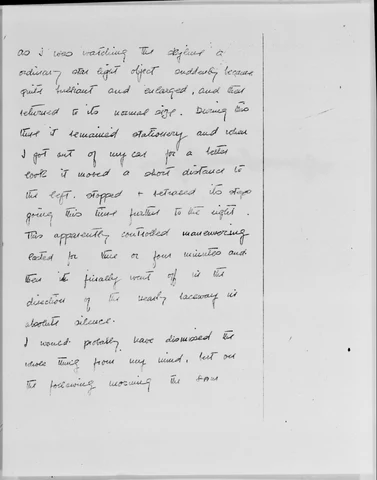 as I was watching the skyline a
ordinary star light object suddenly became
quite brilliant and enlarged, and then
returned to its normal size. During this
time it remained stationary and when
I got out of my car for a better
look it moved a short distance to
the left. stopped + retraced its steps
going this time further to the right.
This apparently controlled maneuvering
lasted for three or four minutes and
then it finally went off in the
direction of the nearby raceway in
absolute silence.
I would probably have dismissed the
whole thing from my mind, but on
the following morning the